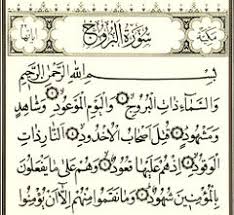 مكية سورة البروج آياتها ٢٢
بِسْمِ اللهِ الرَّحْمٰنِ الرَّحِيْمِ
وَالسَّمَاءِ ذَاتِ الْبُرُوجِ وَالْيَوْمِ الْمَوْعُودِ وَشَاهِدٍ
وَمَشْهُودٍ قُتِلَ أَصْحَابُ الْأُخْدُودِ النَّارِ ذَاتِ
الْوَقُودِ إِذْ هُمْ عَلَيْهَا قُعُودٌ وَهُمْ عَلَى مَا يَفْعَلُونَ
بِالْمُؤْمِنِينَ شُهُودٌ وَمَا نَقَمُوا مِنْهُمْ إِلَّا أَنْ يُؤْمِنُوا